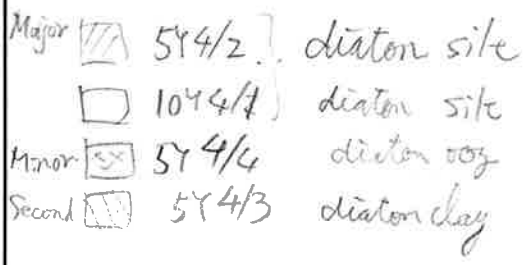 Major 5Y 4/2 } diatom silt
10Y 4/1 } diatom silt
Minor 5Y 4/4 diatom ooz
Second 5Y 4/3 diatom clay